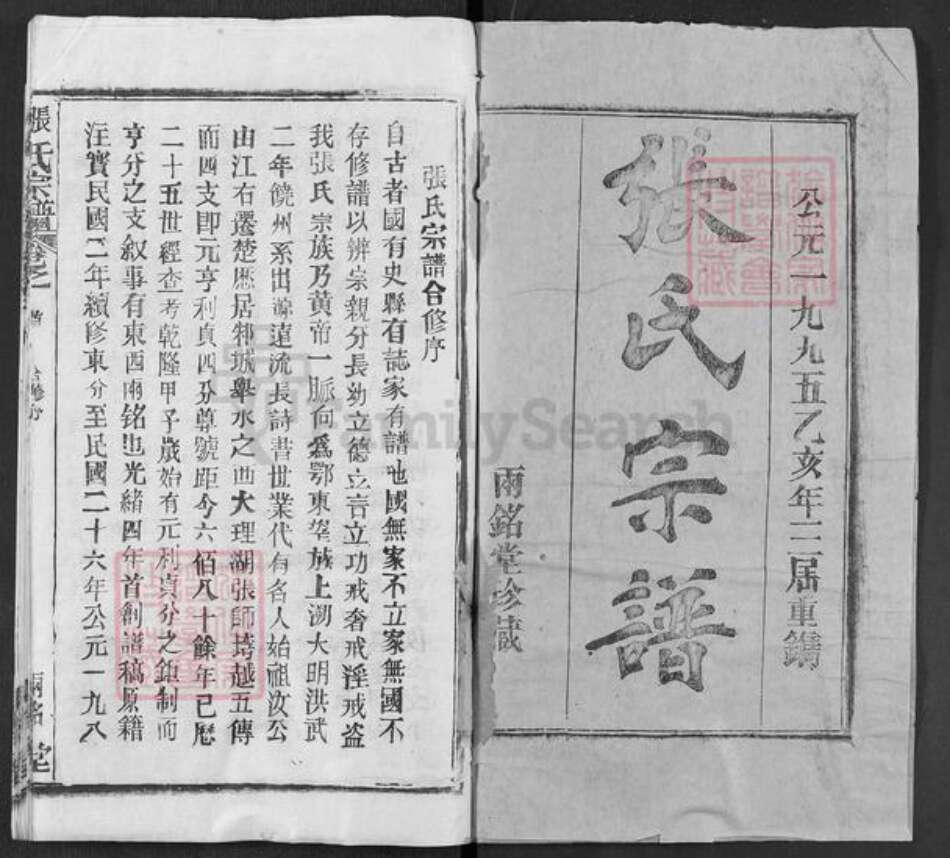 公元一九九五乙亥年三届重鐫
張氏宗譜
兩銘堂珍藏
張氏宗譜合修序
自古者國有史縣有誌家有譜也國無家不立家無國不
存修譜以辨宗親分長幼立德立言立功戒奢戒淫戒盗
我張氏宗族乃黄帝一脈向爲鄂東望族上溯大明洪武
二年饒州系出源遠流長詩書世業代有名人始祖汝公
由江右遷楚歷居邾城舉水之西大理湖張師塆越五傳
而四支即元亨利貞四分尊號距今六佰八十餘年已歷
二十五世經查考乾隆甲子歲始有元利貞分之鉅制而
亨分之支叙事有東西兩铭也光緒四年首創譜稿原籍
注實民國二年續修東分至民國二十六年公元一九八
張氏宗譜
卷之一
首
合修序
兩銘堂
FamilySearch